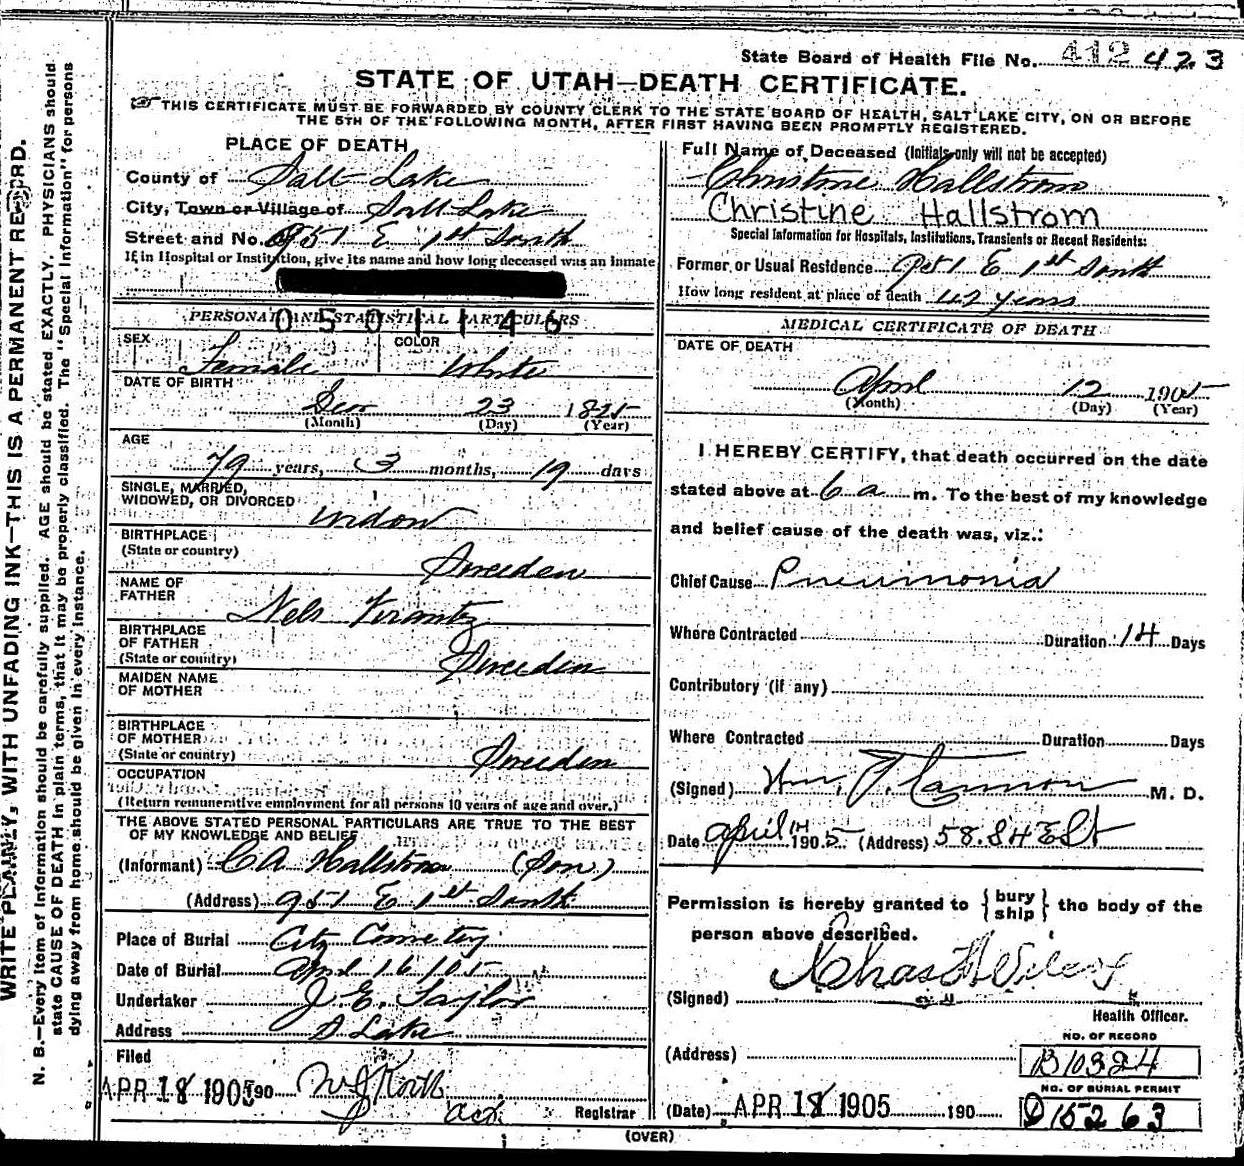 State Board of Health File No. 412 423
STATE OF UTAH—DEATH CERTIFICATE.
THIS CERTIFICATE MUST BE FORWARDED BY COUNTY CLERK TO THE STATE BOARD OF HEALTH, SALT LAKE CITY, ON OR BEFORE
THE 5TH OF THE FOLLOWING MONTH, AFTER FIRST HAVING BEEN PROMPTLY REGISTERED.
PLACE OF DEATH
County of Salt Lake
City, Town or Village of Salt Lake
Street and No. 951 E 1st South
If in Hospital or Institution, give its name and how long deceased was an inmate
0501146
PERSONAL AND STATISTICAL PARTICULARS
SEX Female COLOR White
DATE OF BIRTH
23 1825
(Month) (Day) (Year)
AGE
79 years, 3 months, 19 days
SINGLE, MARRIED,
WIDOWED, OR DIVORCED
widow
BIRTHPLACE
(State or country)
Sweeden
NAME OF
FATHER
Nels Krantz
BIRTHPLACE
OF FATHER
(State or country)
Sweeden
MAIDEN NAME
OF MOTHER
BIRTHPLACE
OF MOTHER
(State or country)
Sweeden
OCCUPATION
(Return remunerative employment for all persons 10 years of age and over.)
THE ABOVE STATED PERSONAL PARTICULARS ARE TRUE TO THE BEST
OF MY KNOWLEDGE AND BELIEF
(Informant) CA Hallstrom (Son)
(Address) 951 E 1st South
Place of Burial City Cemetery
Date of Burial April 16 / 05
Undertaker J. E. Taylor
Address S Lake
Filed
APR 18 1905 190
Act.
Registrar
Full Name of Deceased (Initials only will not be accepted)
Christine Hallstrom
Christine Hallstrom
Special Information for Hospitals, Institutions, Transients or Recent Residents:
Former or Usual Residence 951 E 1st South
How long resident at place of death 42 years
MEDICAL CERTIFICATE OF DEATH
DATE OF DEATH
April 12 1905
(Month) (Day) (Year)
I HEREBY CERTIFY, that death occurred on the date
stated above at 6 a m. To the best of my knowledge
and belief cause of the death was, viz.:
Chief Cause Pneumonia
Where Contracted Duration 14 Days
Contributory (if any)
Where Contracted Duration Days
(Signed) Wm. T. Cannon M. D.
Date April 14 1905 (Address)
Permission is hereby granted to {bury
ship} the body of the
person above described.
(Signed) Chas
Health Officer.
(Address)
NO. OF RECORD
B10324
NO. OF BURIAL PERMIT
D15263
(Date) APR 18 1905 190
(OVER)
WRITE PLAINLY, WITH UNFADING INK—THIS IS A PERMANENT RECORD.
N. B.—Every item of information should be carefully supplied. AGE should be stated EXACTLY. PHYSICIANS should
state CAUSE OF DEATH in plain terms, that it may be properly classified. The "Special Information" for persons
dying away from home should be given in every instance.